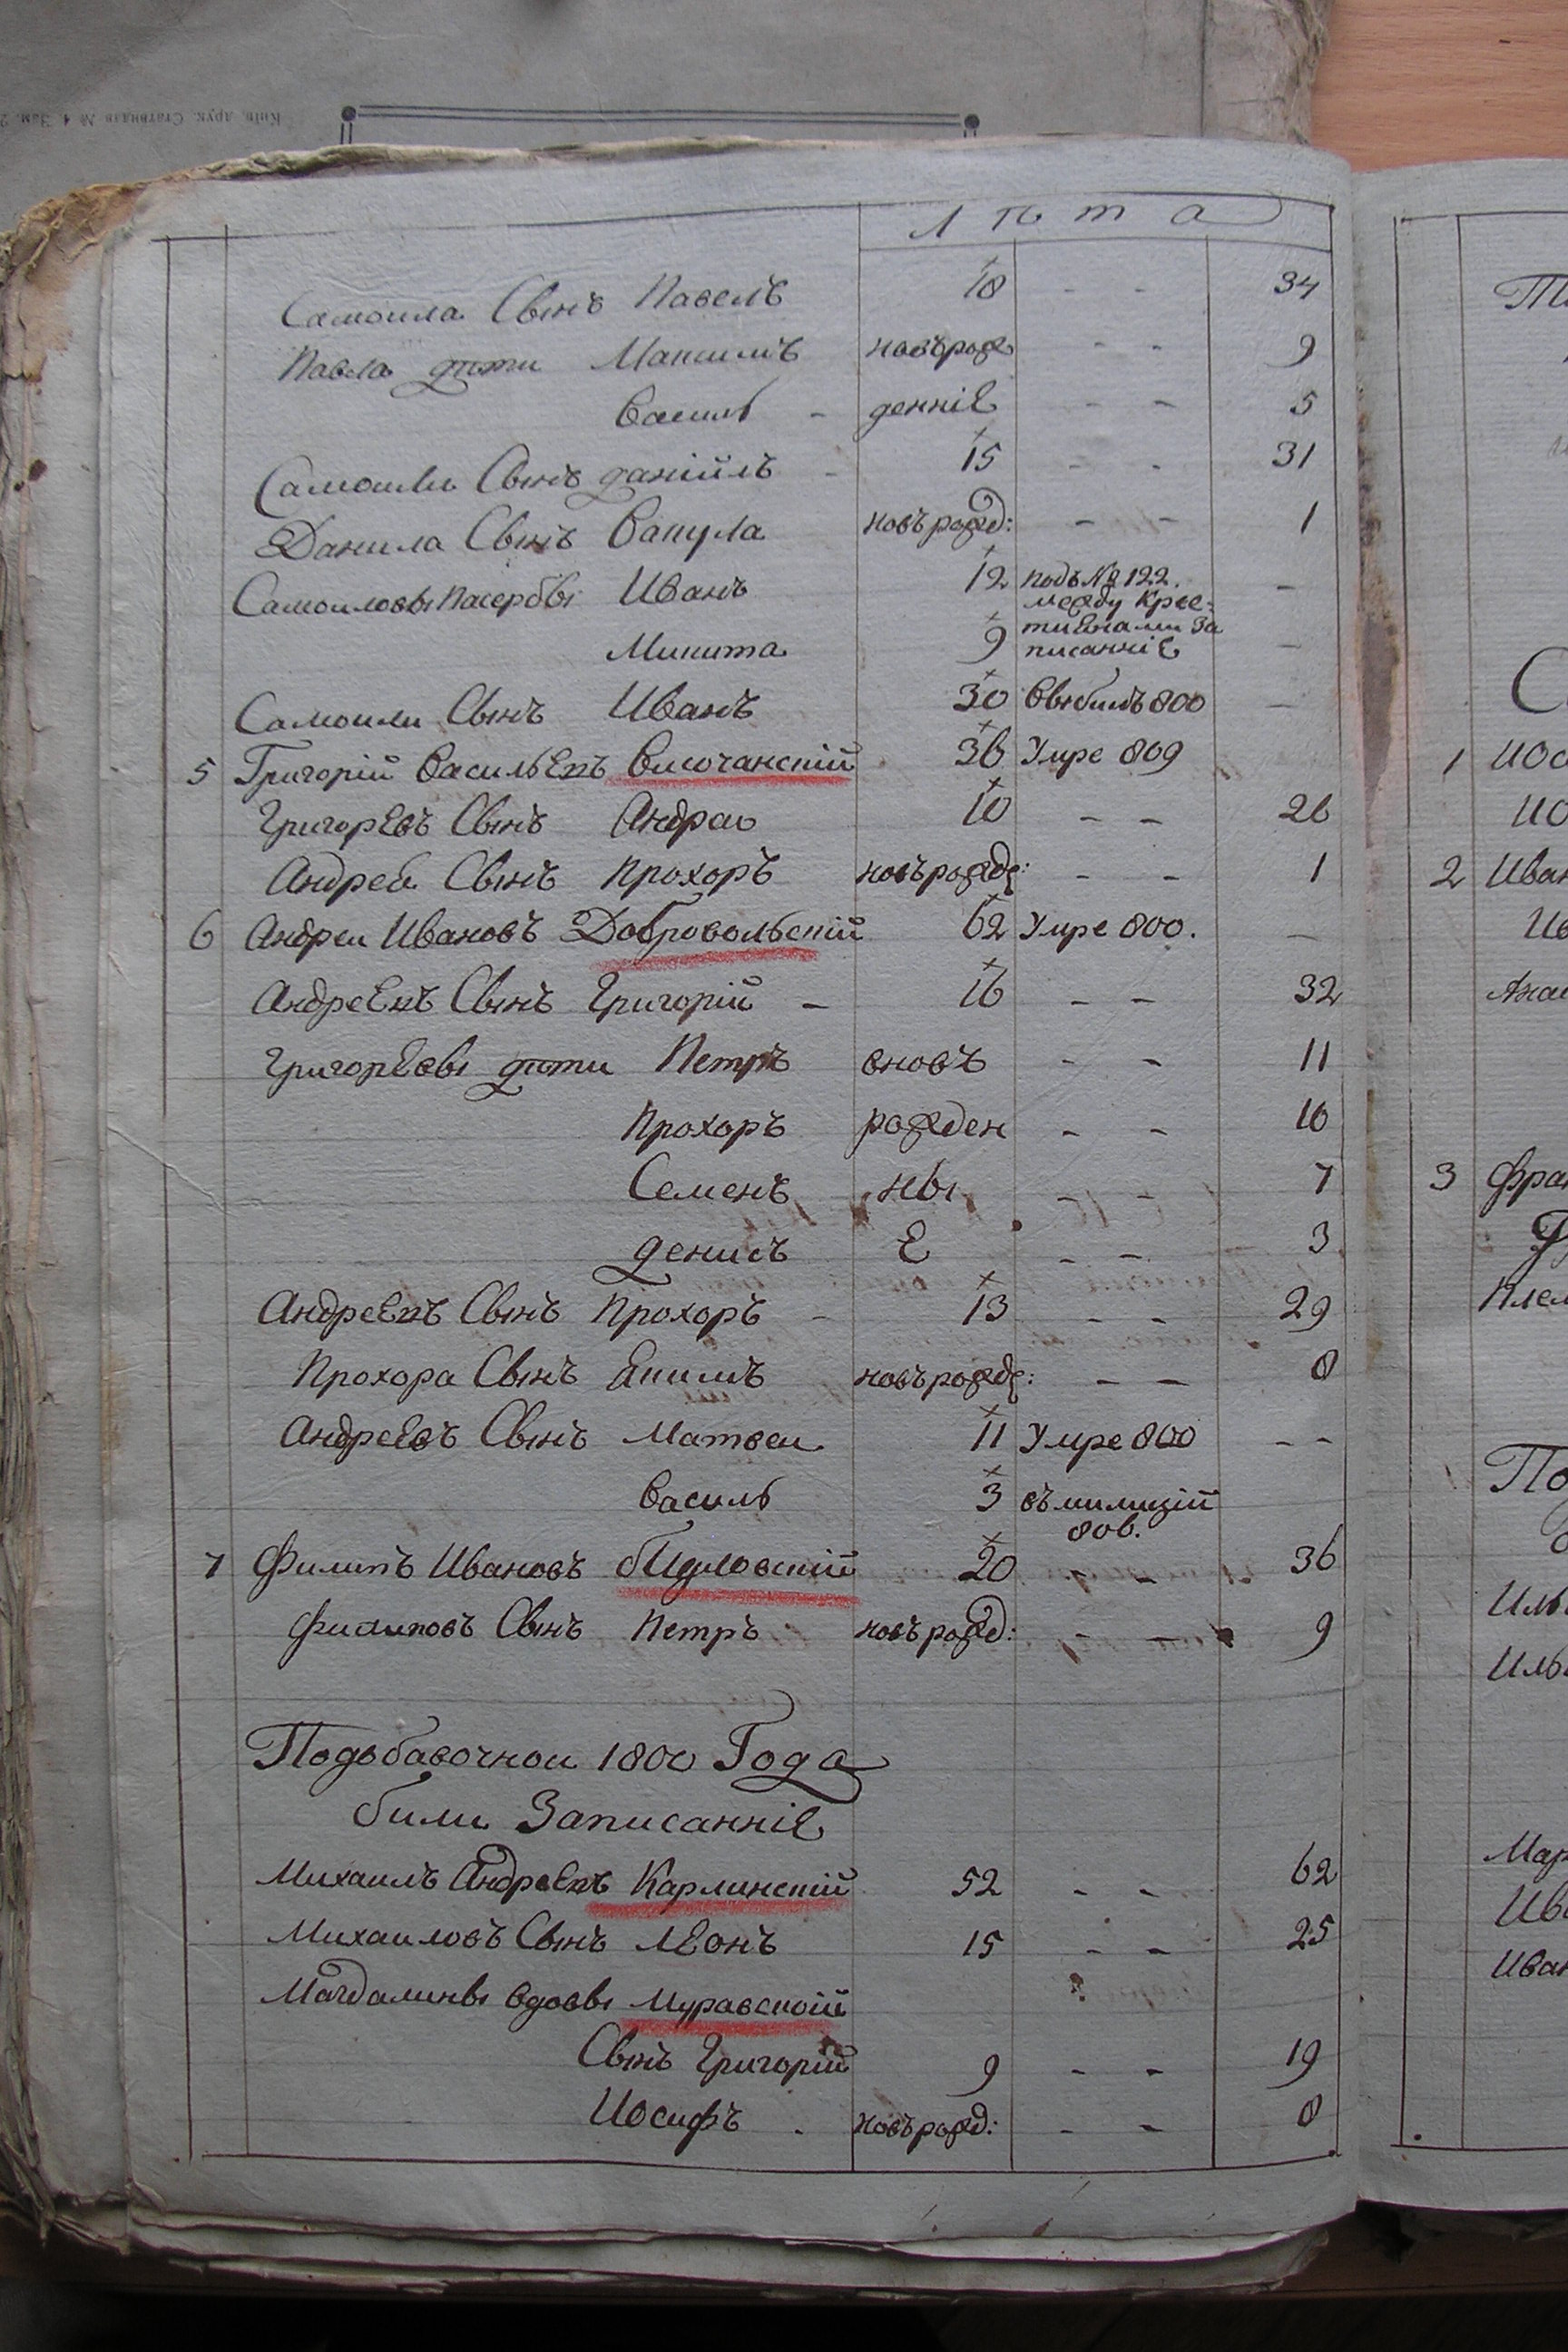 Київ, друк. Статвидав № 4 Зам. 2
Лѣта
Самоила Сынъ Павелъ 18 - - 34
Павла дѣти Максимъ новърож - - 9
Василь - денніе - - 5
Самоили Сынъ данійлъ - 15 - - 31
Данила Сынъ Вакула новърожд: - - 1
Самоиловы пасербы Иванъ 12 подъ № 122. -
между Крес=
Микита 9 тиенами за -
писанніе
Самоили Сынъ Иванъ 30 Выбилъ 800 -
5 Григорій Васильевъ Височанскій 36 Умре 809
Григоревъ Сынъ Андреи 10 - - 26
Андрея Сынъ Прохоръ новърожде: - - 1
6 Андреи Ивановъ Добровольскій 62 Умре 800. -
Андреевъ Сынъ Григорій - 16 - - 32
Григореевы дѣти Петръ вновъ - - 11
Прохоръ рожден - - 10
Семенъ ны - - 7
денисъ е - - 3
Андреевъ Сынъ Прохоръ - 13 - - 29
Прохора Сынъ Якимъ новърожде: - - 8
Андреевъ Сынъ Матвеи 11 Умре 800 - -
Василь 3 въ милицій
806.
7 Филипъ Ивановъ бидловскій 20 - - 36
Филиповъ Сынъ Петръ новърожд: - - 9
Подобавочнои 1800 Года
били Записанніе
Михаилъ Андреевъ Карлинскій 52 - - 62
Михаиловъ Сынъ Леонъ 15 - - 25
Магдалины вдовы Муравской
Сынъ Григорій 9 - - 19
Иосифъ - новърожд: - - 8
1
2 Иван
3 Фран